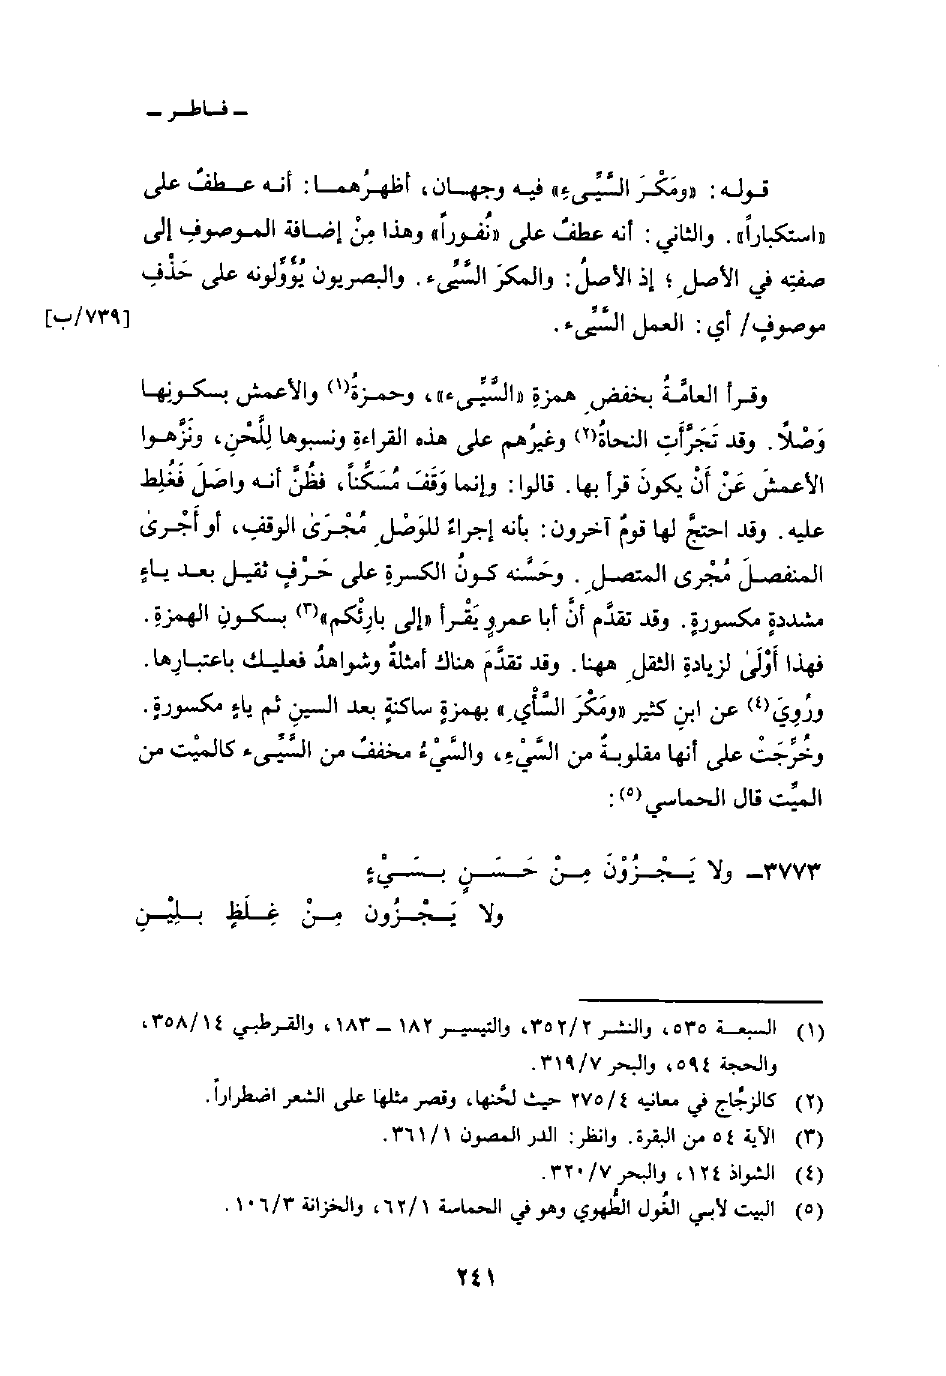 ـ فاطر ـ
قوله: «ومَكْرَ السَّيِّىءِ» فيه وجهان، أظهرُهما: أنه عطفٌ على
«استكباراً». والثاني: أنه عطفٌ على «نُفوراً» وهذا مِنْ إضافة الموصوفِ إلى
صفتِه في الأصلِ؛ إذ الأصلُ: والمكرَ السَّيِّىء. والبصريون يُؤَوِّلونه على حَذْفِ
موصوفٍ/ أي: العمل السَّيِّىء. [٧٣٩/ب]
وقرأ العامَّةُ بخفضِ همزةِ «السَّيِّىء»، وحمزةُ(١) والأعمش بسكونِها
وَصْلاً. وقد تَجَرَّأَتِ النحاةُ(٢) وغيرُهم على هذه القراءةِ ونسبوها لِلَّحْنِ، ونَزَّهوا
الأعمشَ عَنْ أَنْ يكونَ قرأ بها. قالوا: وإنما وَقَفَ مُسَكِّناً، فظُنَّ أنه واصَلَ فَغُلِط
عليه. وقد احتجَّ لها قومٌ آخرون: بأنه إجراءٌ للوَصْلِ مُجْرَىٰ الوقف، أو أَجْرىٰ
المنفصلَ مُجْرى المتصلِ. وحَسَّنه كونُ الكسرةِ على حَرْفٍ ثقيل بعد ياءٍ
مشددةٍ مكسورةٍ. وقد تقدَّم أنَّ أبا عمروٍ يَقْرأ «إلى بارِئْكم»(٣) بسكونِ الهمزةِ.
فهذا أَوْلَىٰ لزيادةِ الثقلِ ههنا. وقد تقدَّمَ هناك أمثلةٌ وشواهدُ فعليك باعتبارِها.
ورُوِيَ(٤) عن ابنِ كثير «ومَكْرَ السَّأْيِ» بهمزةٍ ساكنةٍ بعد السينِ ثم ياءٍ مكسورةٍ.
وخُرِّجَتْ على أنها مقلوبةٌ من السَّيْءِ، والسَّيْءُ مخففٌ من السَّيِّىء كالميْت من
الميِّت قال الحماسي(٥):
٣٧٧٣ـ ولا يَجْزُوْنَ مِنْ حَسَنٍ بسَيْءٍ
ولا يَجْزُون مِنْ غِلَظٍ بلِيْنِ
(١) السبعة ٥٣٥، والنشر ٣٥٢/٢، والتيسير ١٨٢ ـ ١٨٣، والقرطبي ٣٥٨/١٤،
والحجة ٥٩٤، والبحر ٣١٩/٧.
(٢) كالزجَّاج في معانيه ٢٧٥/٤ حيث لحَّنها، وقصر مثلها على الشعر اضطراراً.
(٣) الآية ٥٤ من البقرة. وانظر: الدر المصون ٣٦١/١.
(٤) الشواذ ١٢٤، والبحر ٣٢٠/٧.
(٥) البيت لأبي الغُول الطُّهوي وهو في الحماسة ٦٢/١، والخزانة ١٠٦/٣.
٢٤١